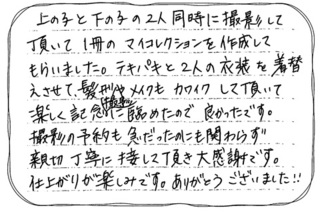 上の子と下の子の2人同時に撮影して
頂いて1冊のマイコレクションを作成して
もらいました。テキパキと2人の衣装を着替
えさせて、髪型やメイクもカワイクして頂いて
楽しく記念撮影に臨めたので良かったです。
撮影の予約も急だったのにも関わらず
親切丁寧に接して頂き大感謝です。
仕上がりが楽しみです。ありがとうございました!!